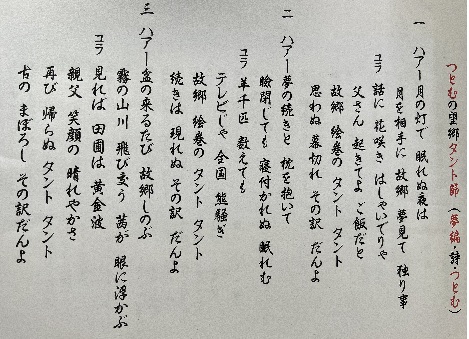 つとむの望郷タント節（夢編・詩・つとむ）
一 ハアー月の灯で 眠れぬ夜は
月を相手に 故郷 夢見て 独り事
コラ 話に 花咲き はしゃいでりゃ
父さん 起きてよ ご飯だと
故郷 絵巻の タント タント
思わぬ 幕切れ その訳 だんよ
二 ハアー夢の続きと 枕を抱いて
瞼閉しても 寝付かれぬ 眠れむ
コラ 羊千匹 数えても
テレビじゃ 全国 熊騒ぎ
故郷 絵巻の タント タント
続きは 現れぬ その訳 だんよ
三 ハアー盆の来るたび 故郷しのぶ
霧の山川 飛び交う 茜が 眼に浮かぶ
コラ 見れば 田圃は 黄金波
親父 笑顔の 晴れやかさ
再び 帰らぬ タント タント
古の まぼろし その訳だんよ